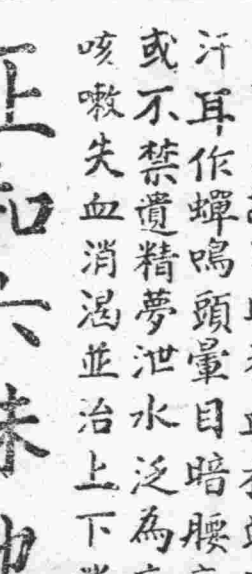 汗耳作蟬鳴頭暈目暗腰
或不禁遺精夢泄水泛為
咳嗽失血消渴並治上下
正知六味